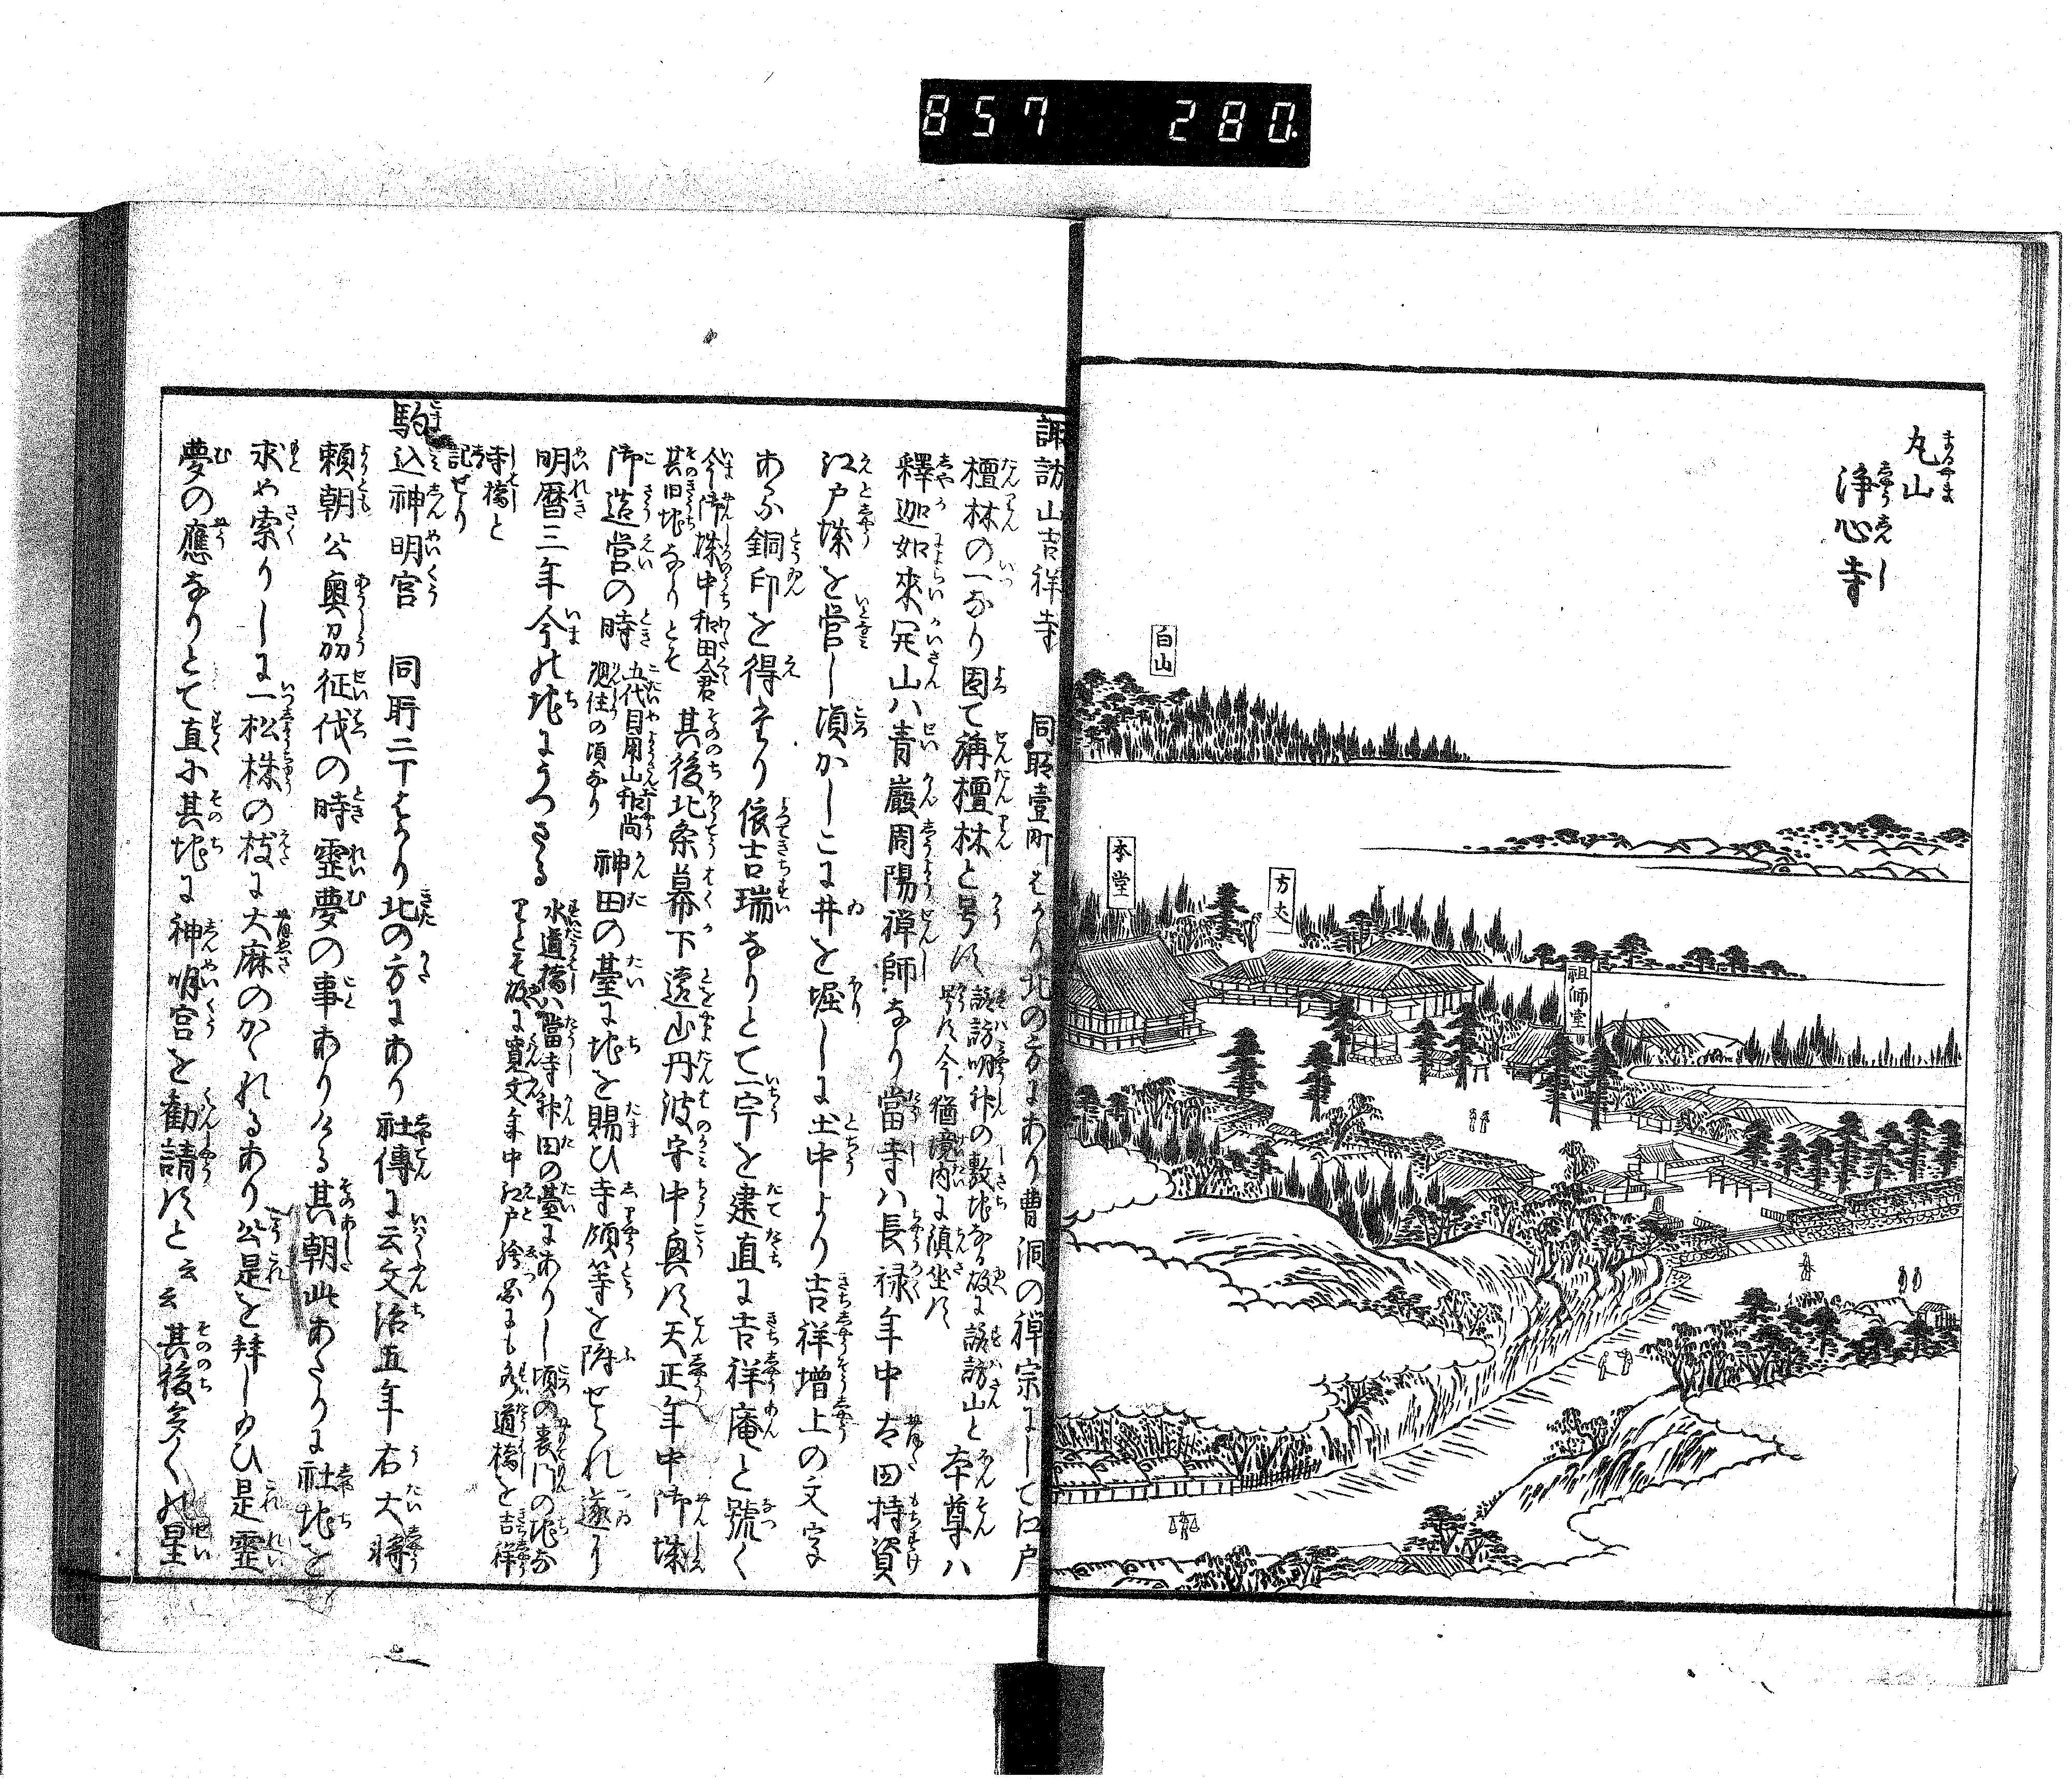 857 280
丸山
浄心寺
白山
本堂
方丈
祖師堂
諏訪山吉祥寺 同所壹町ばかり北の方にあり曹洞の禅宗にして江戸
檀林の一なり因て旃檀林と号す 諏訪明神の敷地なる故に諏訪山と
号す今猶境内に鎮坐す 本尊ハ
釋迦如來開山ハ青巖周陽禅師なり當寺ハ長禄年中太田持資
江戸城を営し頃かしこに井を堀しに土中より吉祥増上の文字
ある銅印を得たり依吉瑞なりとて一宇を建直に吉祥庵と號く
今御城中和田倉
其旧地なりとそ 其後北条幕下遠山丹波守中興す天正年中御城
御造営の時 五代目用山和尚
現住の頃なり 神田の臺に地を賜ひ寺領等を附せられ遂に
明暦三年今の地にうつさる 水道橋ハ當寺神田の臺にありし頃の表門の地な
りとそ故に寛文年中江戸繪図にも水道橋を吉祥
寺橋と
記せり
駒込神明宮 同所二丁ばかり北の方にあり社傳に云文治五年右大将
頼朝公奥刕征伐の時霊夢の事ありける其朝此あたりに社地を
求め索りしに一松株の枝に大麻のかゝれるあり公是を拝し給ひ是霊
夢の應なりとて直に其地に神明宮を勧請すと云云其後多くの星